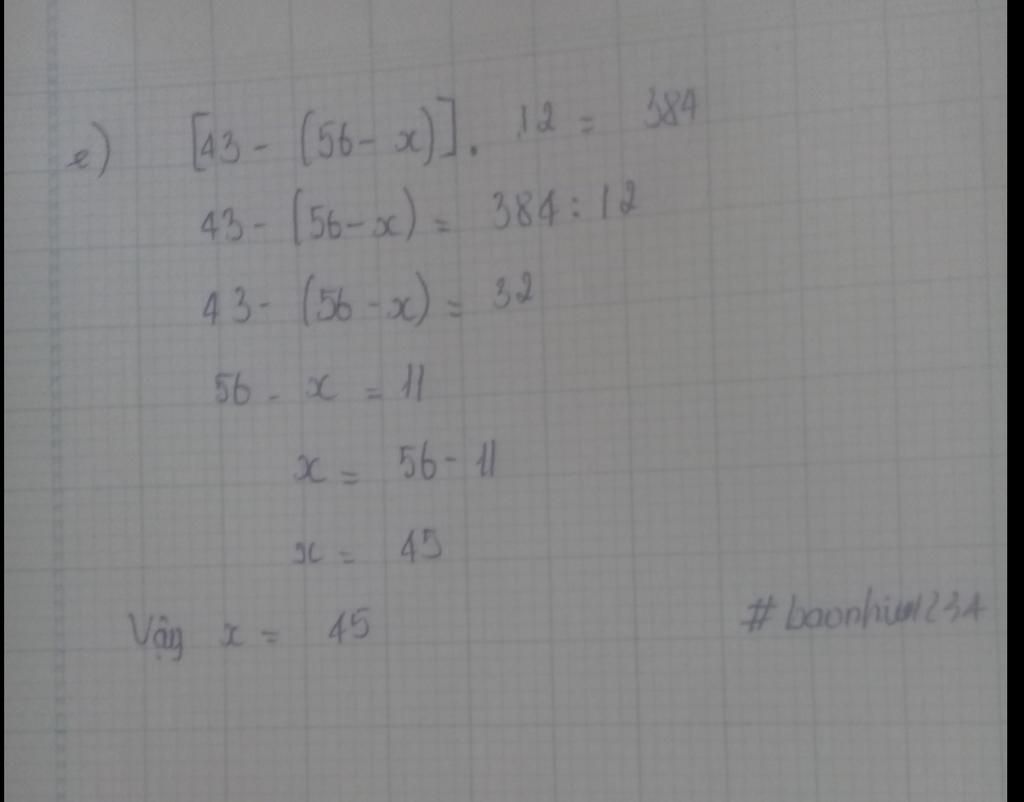 e) [43 - (56 - x)] . 12 = 384
43 - (56 - x) = 384 : 12
43 - (56 - x) = 32
56 - x = 11
x = 56 - 11
x = 45
Vậy x = 45
#baonhius1234